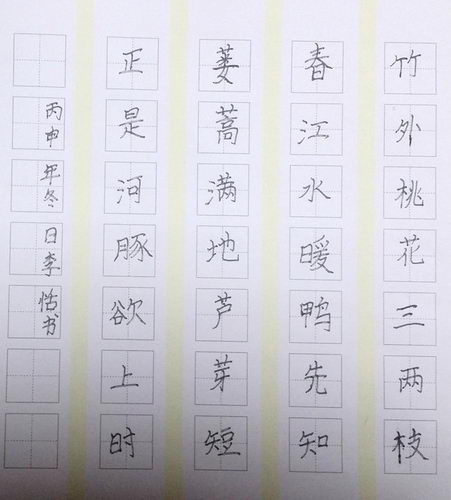 竹外桃花三两枝
春江水暖鸭先知
蒌蒿满地芦芽短
正是河豚欲上时
丙申年冬日李恬书